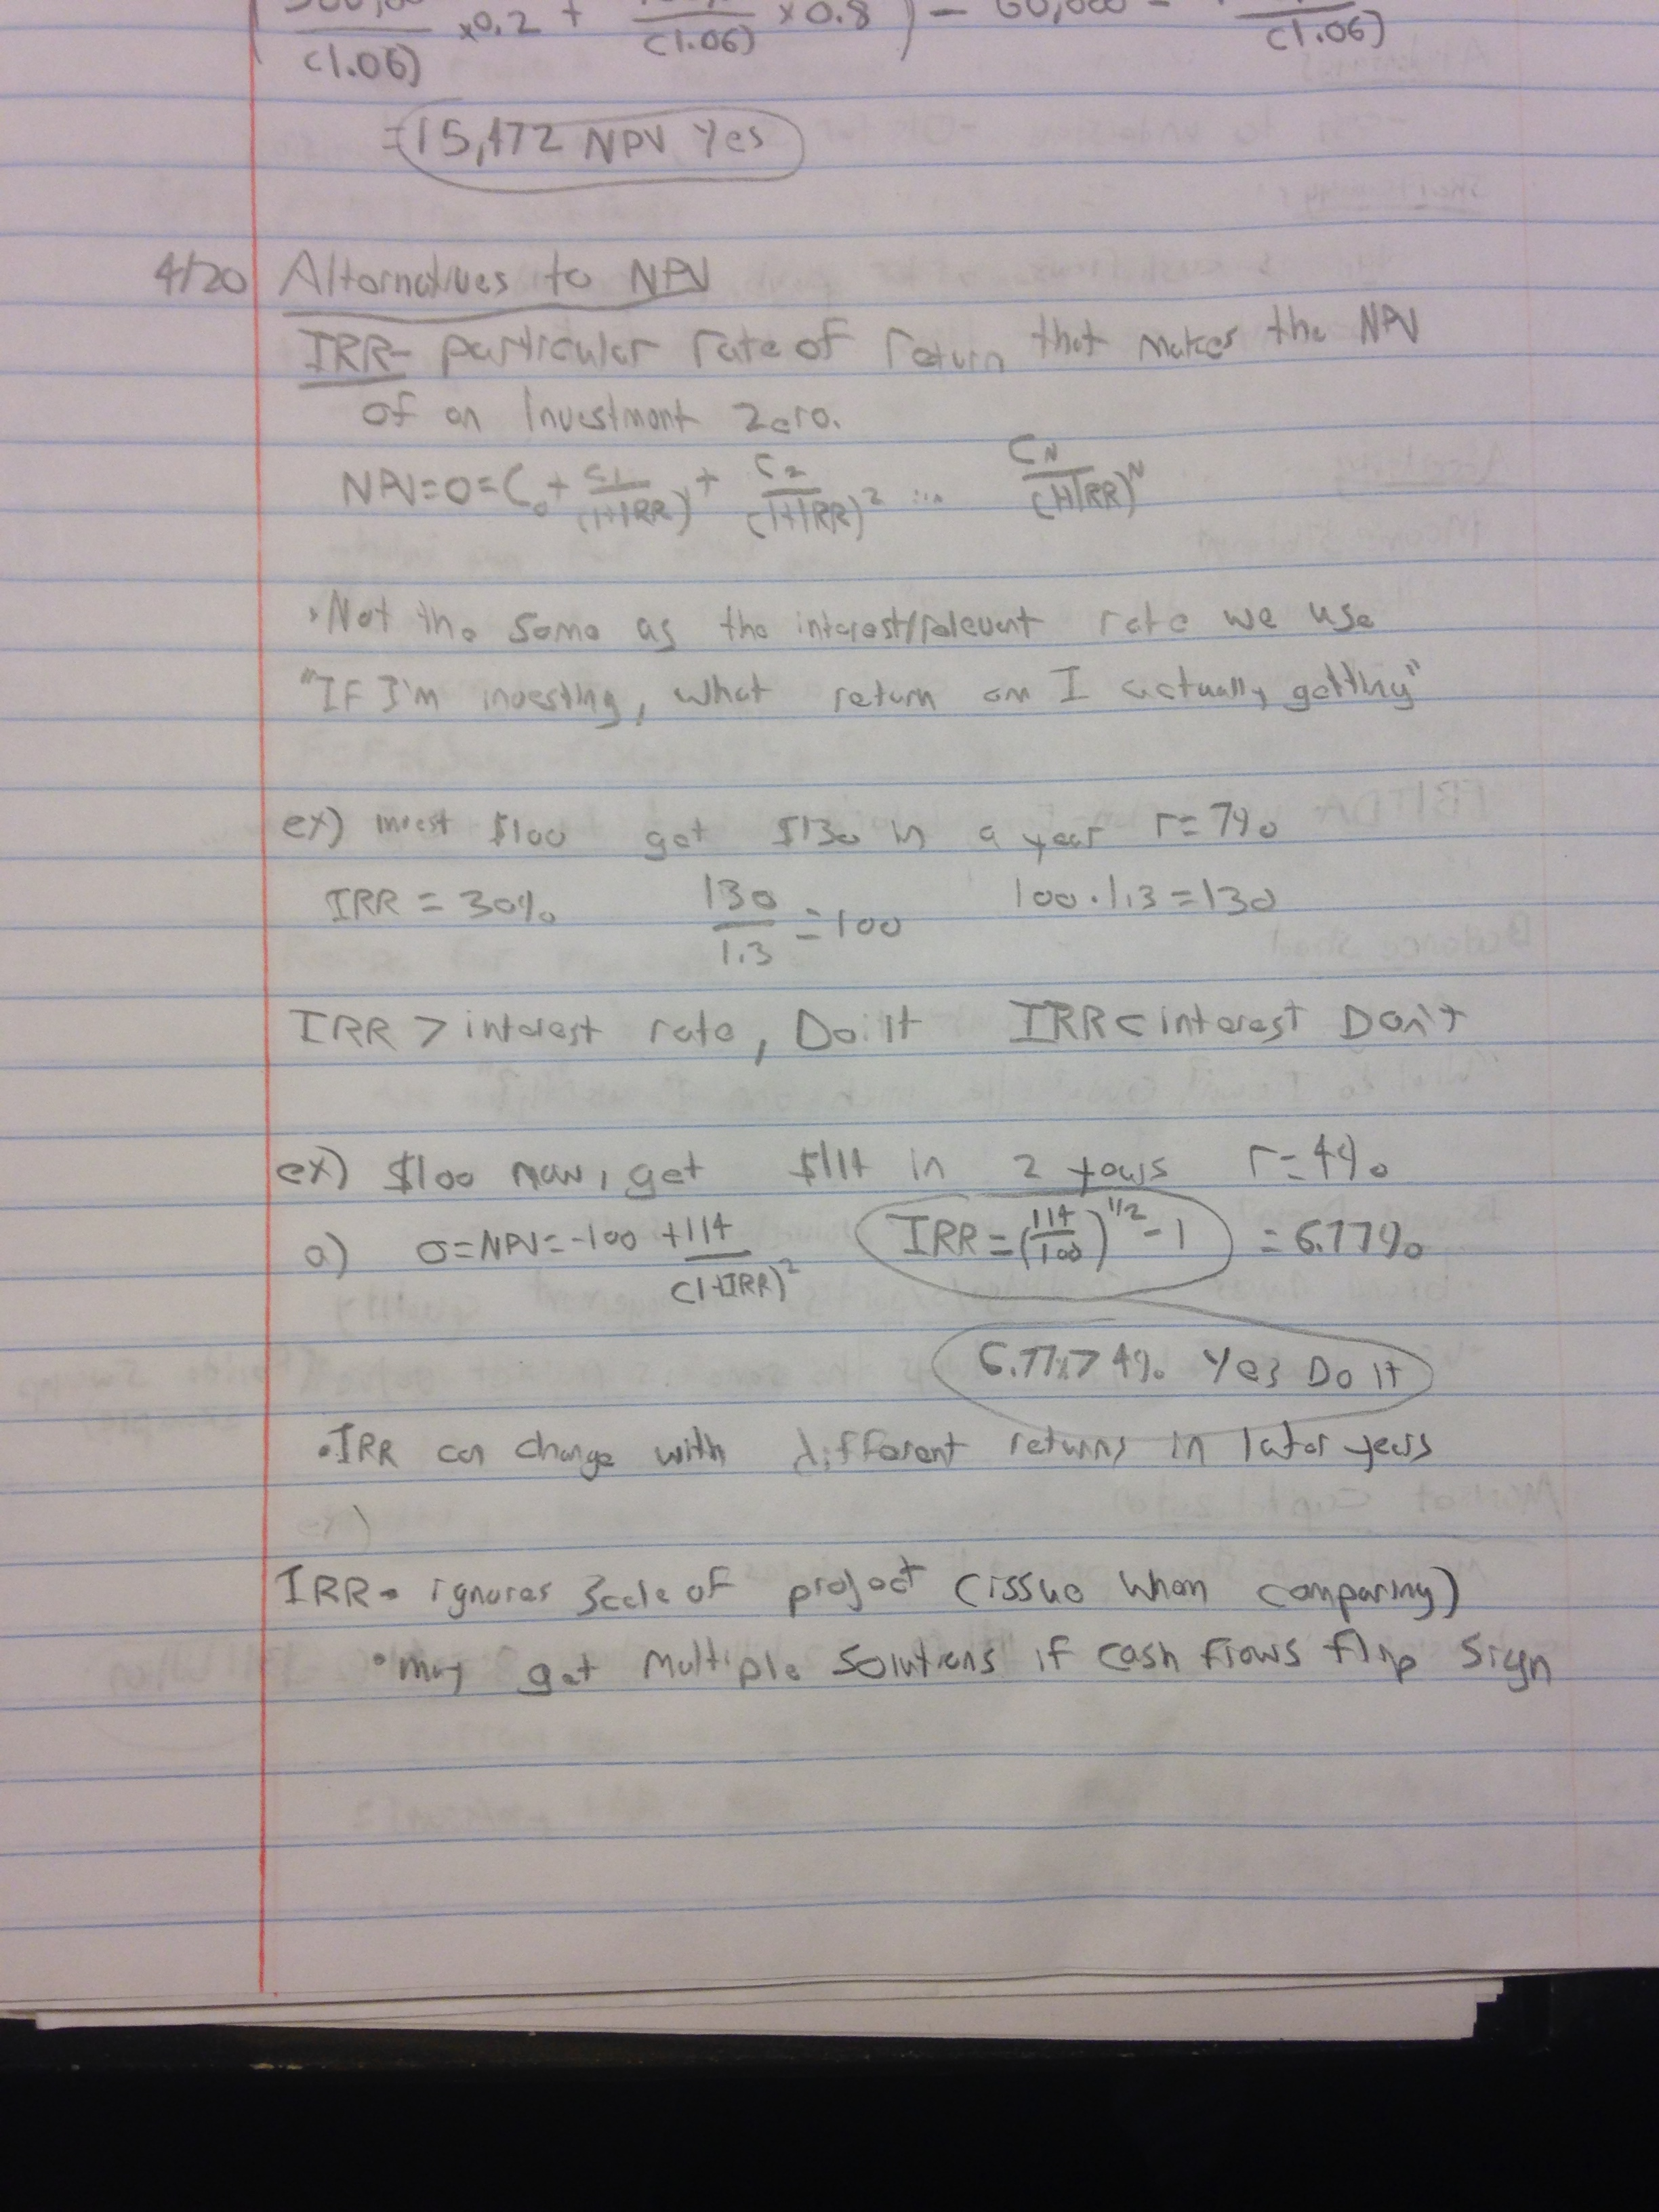 (1.06) ×0.2 + (1.06) ×0.8 ) - 60,000 - (1.06)
= 15,472 NPV Yes
4/20 Alternatives to NPV
IRR- particular rate of return that makes the NPV
of an Investment Zero.
NPV=0=C₀+ C₁/(1+IRR) + C₂/(1+IRR)² ... C_N/(1+IRR)^N
·Not the same as the interest/relevant rate we use
"If I'm investing, what return am I actually getting"
ex) invest $100 get $130 in a year r=7%
IRR = 30% 130/1.3 = 100 100·1.3=130
IRR > interest rate, Do it IRR < interest Don't
ex) $100 now, get $114 in 2 years r=4%
a) 0=NPV=-100 + 114/(1+IRR)² IRR=(114/100)^1/2 -1 = 6.77%
6.77>4% Yes Do it
·IRR can change with different returns in later years
ex)
IRR • ignores scale of project (issue when comparing)
• may get multiple solutions if cash flows flip sign